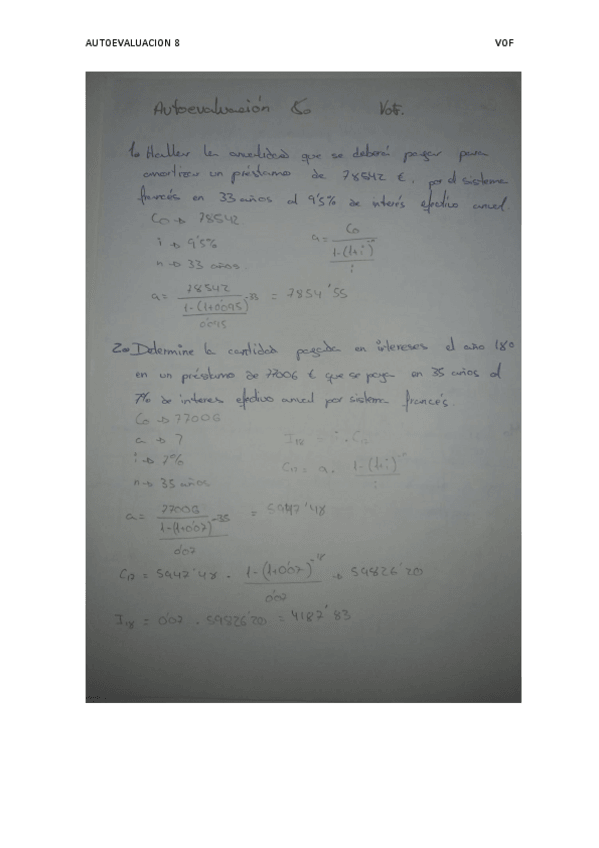 AUTOEVALUACION 8 VOF
Autoevaluación 8o VOF.
1o Hallar la anualidad que se deberá pagar para
amortizar un préstamo de 78542 €, por el sistema
francés en 33 años al 9'5% de interés efectivo anual.
Co → 78542
i → 9'5%
n → 33 años.
a = Co / (1-(1+i)^-n / i)
a = 78542 / (1-(1+0'095)^-33 / 0'095) = 7854'55
2o Determine la cantidad pagada en intereses el año 18o
en un préstamo de 77006 € que se paga en 35 años al
7% de interes efectivo anual por sistema francés.
Co → 77006
a → ?
i → 7%
n → 35 años
a = 77006 / (1-(1+0'07)^-35 / 0'07) = 5947'48
C17 = 5947'48 · 1-(1+0'07)^-18 / 0'07 → 59826'20
I18 = 0'07 · 59826'20 = 4187'83